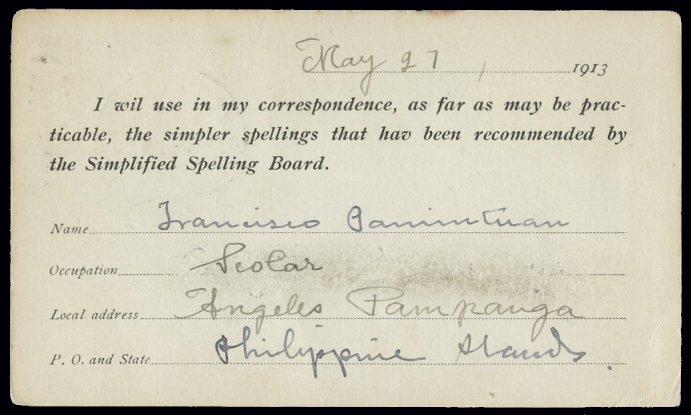 May 27, 1913
I wil use in my correspondence, as far as may be prac-
ticable, the simpler spellings that hav been recommended by
the Simplified Spelling Board.
Name Francisco Panintuan
Occupation Scolar
Local address Angeles Pampanga
P. O. and State Philippine Islands.